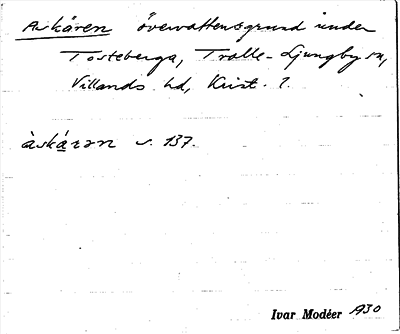 Askären övervattensgrund under
Tosteberga, Trolle-Ljungby sn,
Villands hd, Krist. l.
àskä̱rən s. 137.
Ivar Modéer 1930